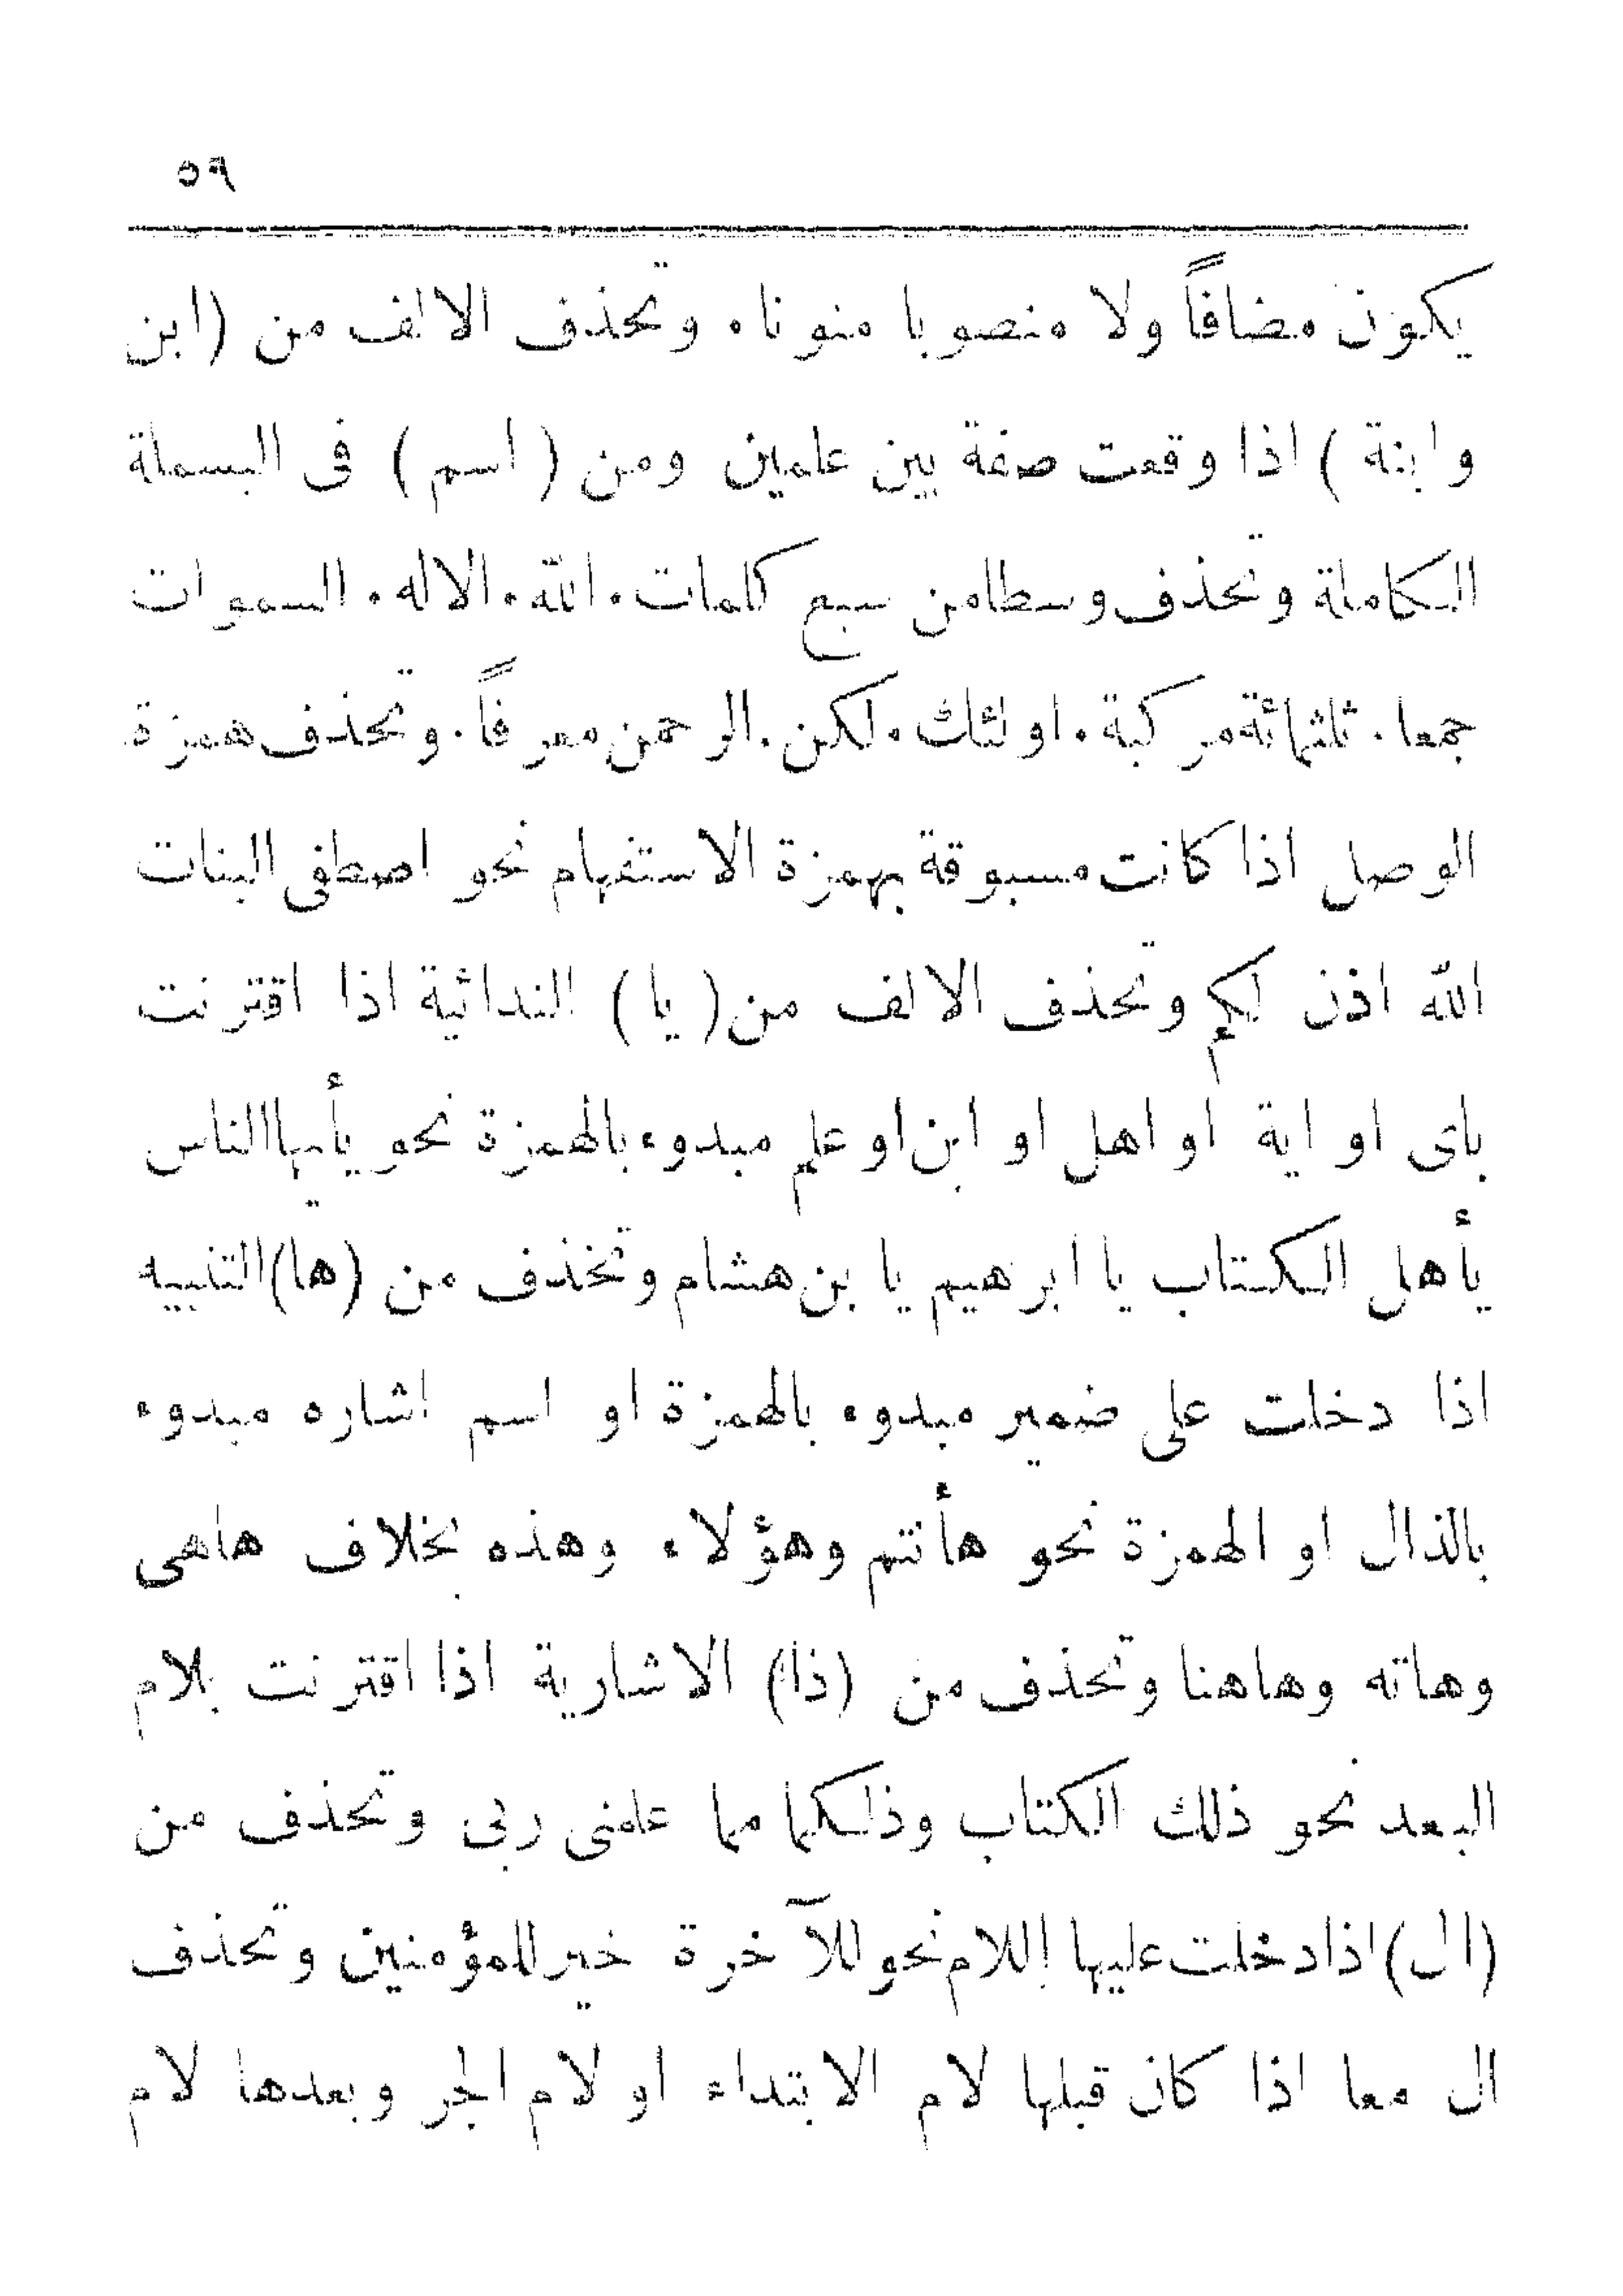 ٥٩
يكون مضافاً ولا منصوبا منونا . وتحذف الالف من (ابن
وابنة ) اذا وقعت صفة بين علمين ومن ( اسم ) فى البسملة
الكاملة وتحذف وسطا من سبع كلمات . الله . الاله . السموات
جمعا . ثلثمائة مركبة . اولئك . لكن . الرحمن معرفاً . وتحذف همزة
الوصل اذا كانت مسبوقة بهمزة الاستفهام نحو اصطفى البنات
الله اذن لكم وتحذف الالف من ( يا ) الندائية اذا اقترنت
باى او اية او اهل او ابن او علم مبدوء بالهمزة نحو يأيها الناس
يأهل الكتاب يا ابرهيم يا بن هشام وتحذف من (ها) التنبيه
اذا دخلت على ضمير مبدوء بالهمزة او اسم اشاره مبدوء
بالذال او الهمزة نحو هأنتم وهؤلاء وهذه بخلاف هاهى
وهاته وهاهنا وتحذف من (ذا) الاشارية اذا اقترنت بلام
البعد نحو ذلك الكتاب وذلكما مما علمنى ربى وتحذف من
(ال) اذا دخلت عليها اللام نحو للآخرة خير للمؤمنين وتحذف
ال معا اذا كان قبلها لام الابتداء او لام الجر وبعدها لام